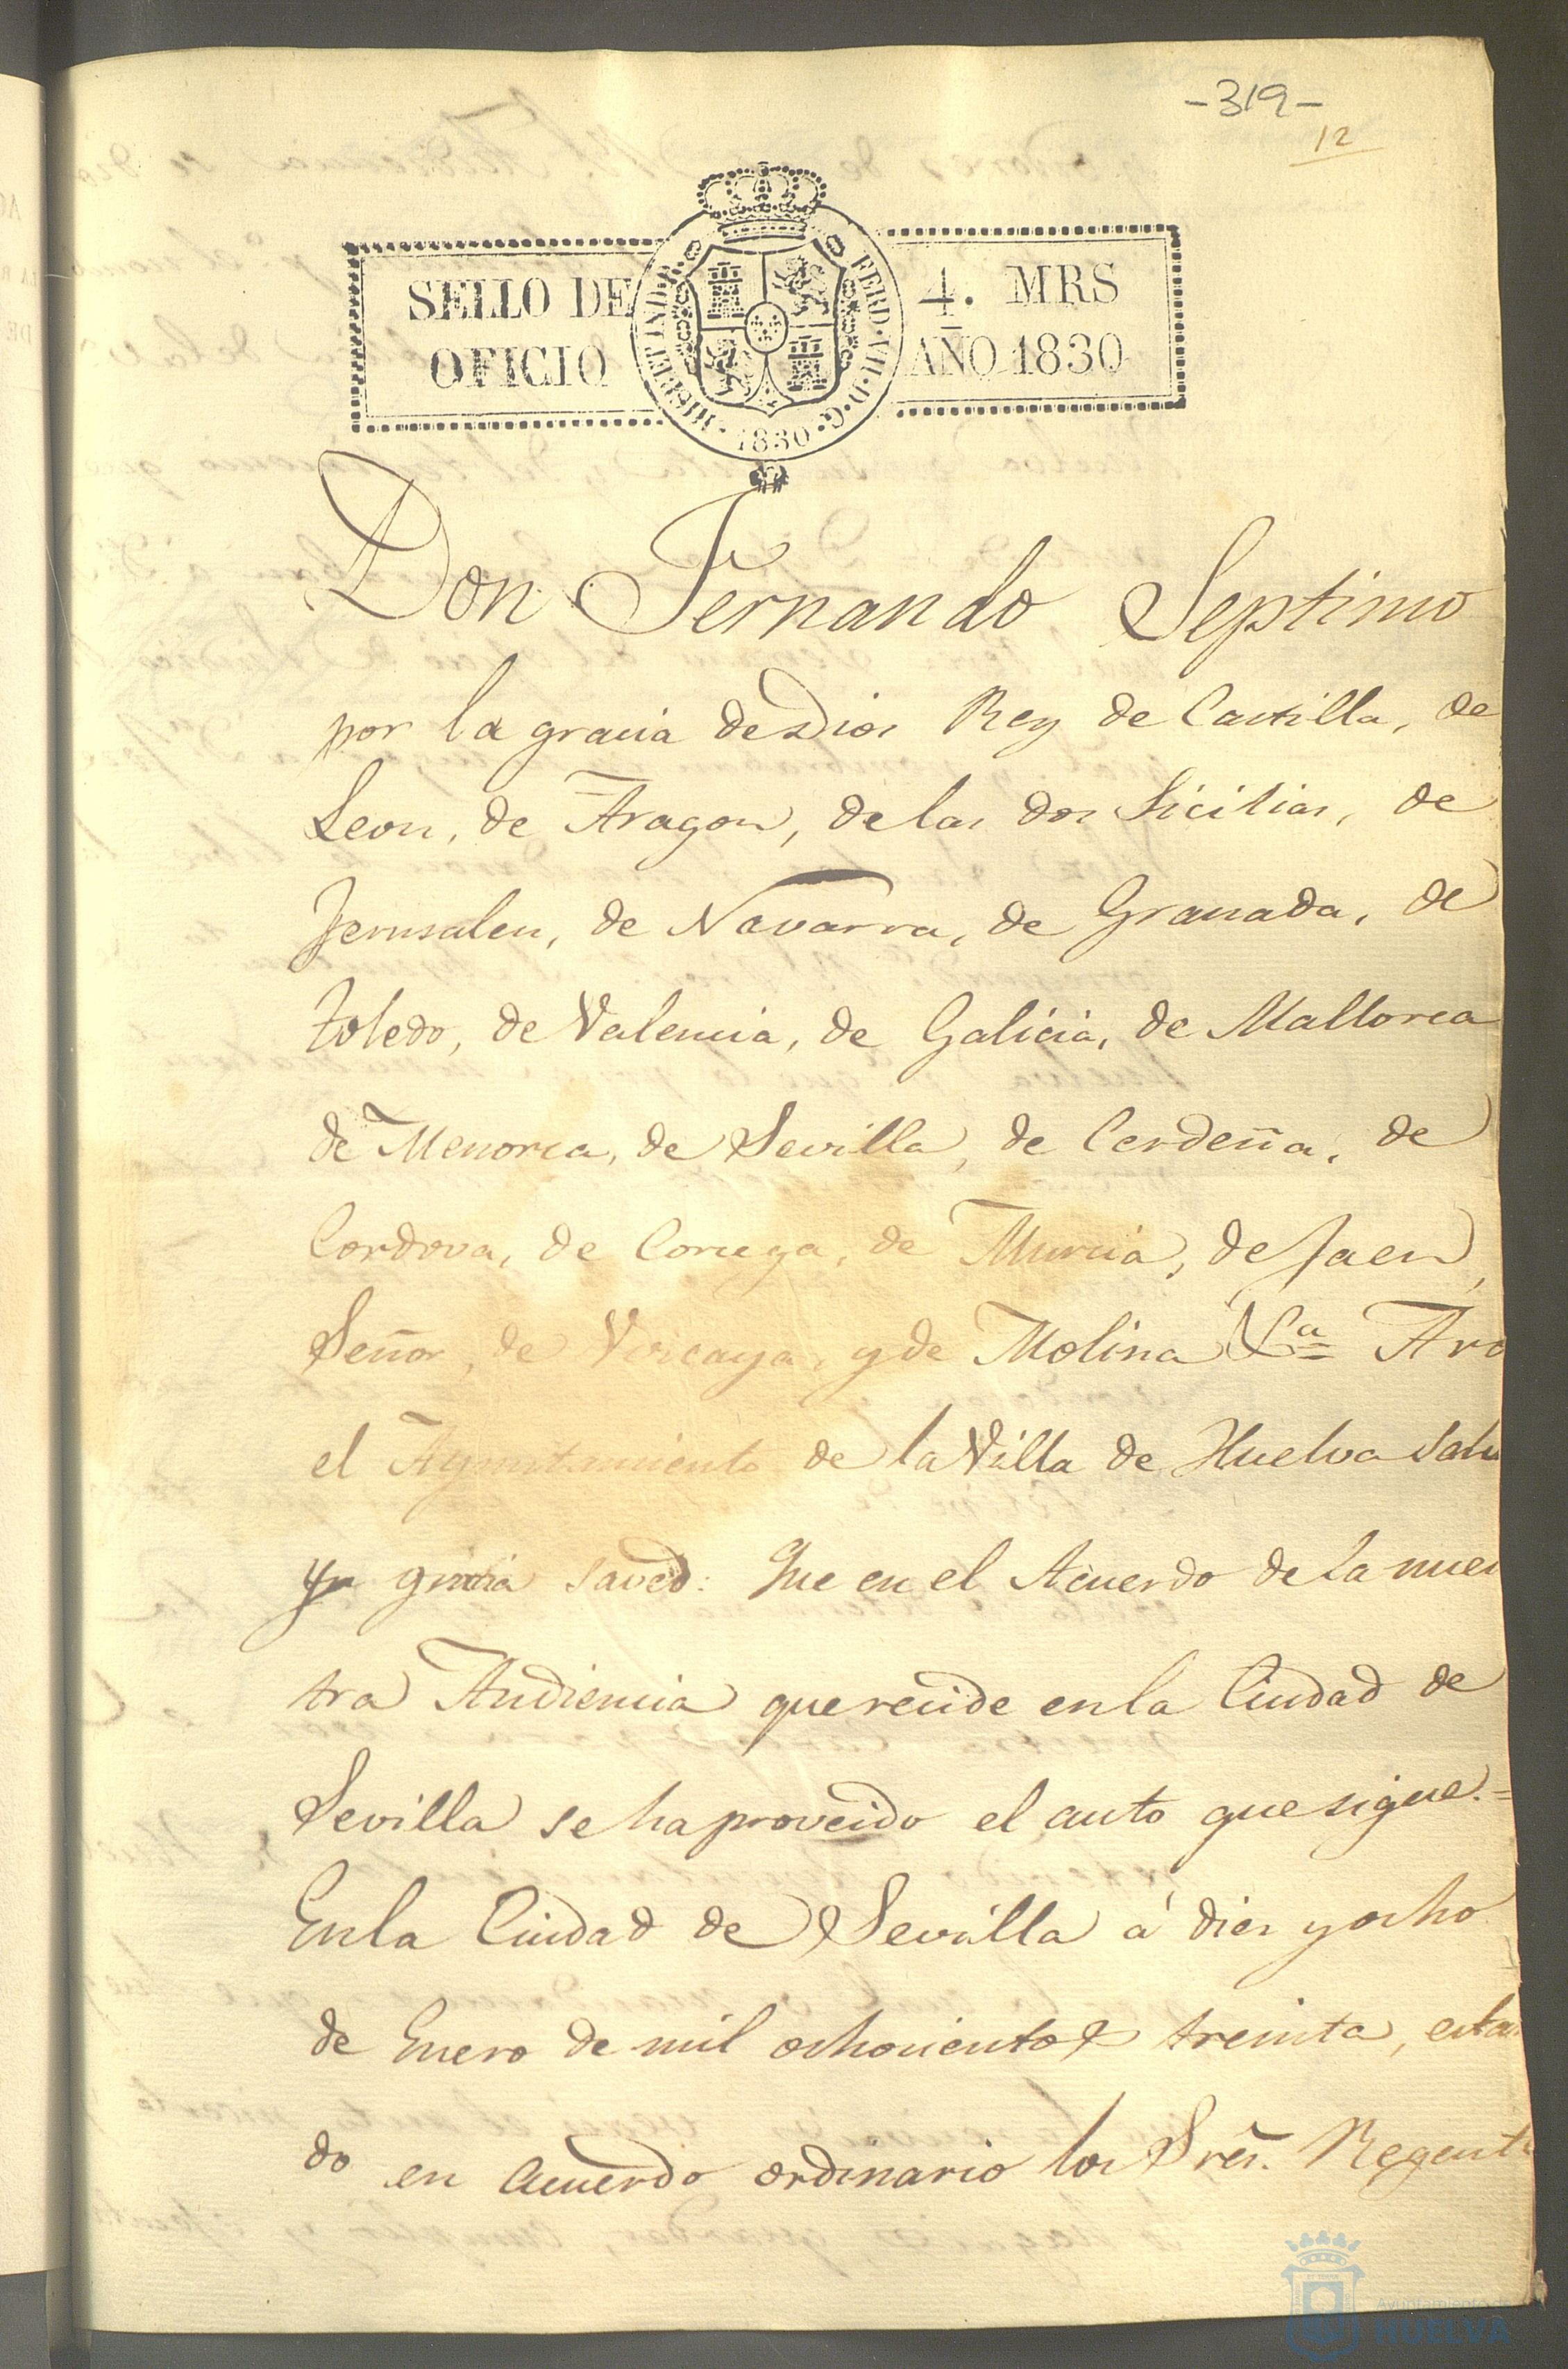 -319-
12
SELLO DE 4. MRS
OFICIO AÑO 1830
HISP. ET IND. R. FERD. VII. D. G. 1830
Don Fernando Septimo
por la gracia de Dios Rey de Castilla, de
Leon, de Aragon, de las dos Sicilias, de
Jerusalen, de Navarra, de Granada, de
Toledo, de Valencia, de Galicia, de Mallorca
de Menorca, de Sevilla, de Cerdeña, de
Cordova, de Corcega, de Murcia, de Jaen,
Señor, de Vizcaya, y de Molina &ca= A vo
el Ayuntamiento de la Villa de Huelva salu
y gracia saved: Que en el Acuerdo de la nues
tra Audiencia que recide en la Ciudad de
Sevilla se ha proveido el auto que sigue.=
En la Ciudad de Sevilla á diez y ocho
de Enero de mil ochocientos treinta, estan
do en acuerdo ordinario los Sres. Regente
Ayuntamiento de
HUELVA